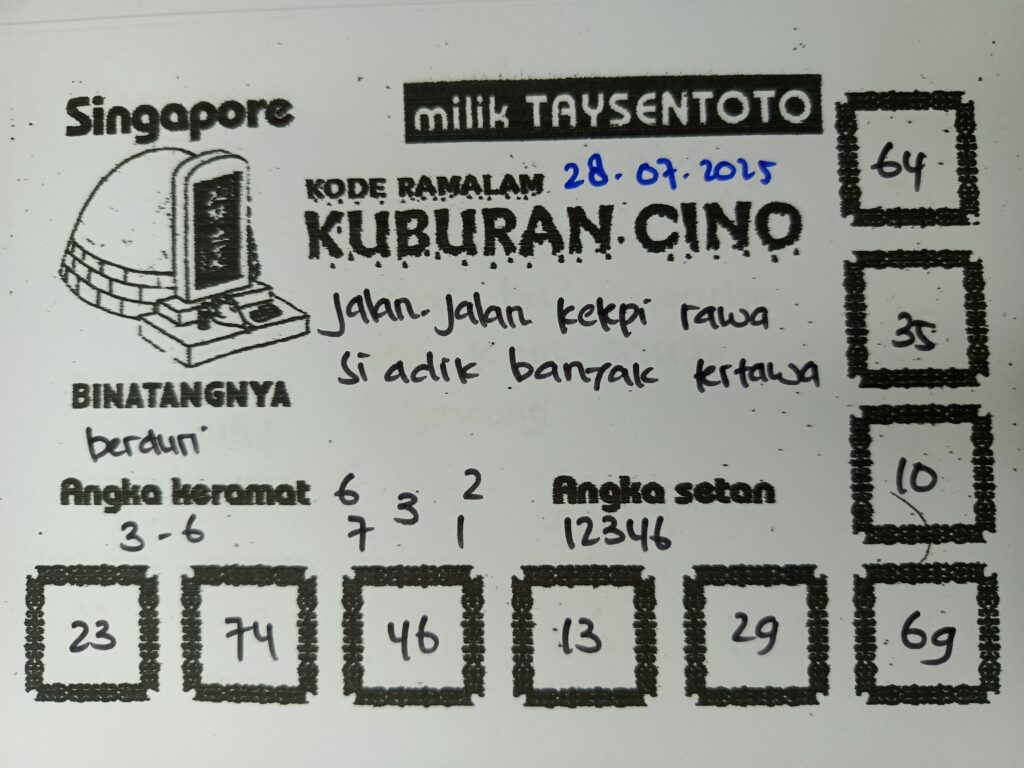 Singapore
milik TAYSENTOTO
KODE RAMALAM 28.07.2025
KUBURAN CINO
Jalan-Jalan kekpi rawa
Si adik banyak tertawa
BINATANGNYA
berduri
Angka keramat
3 - 6
6 3 2
7 1
Angka setan
12346
64
35
10
23 74 46 13 29 69